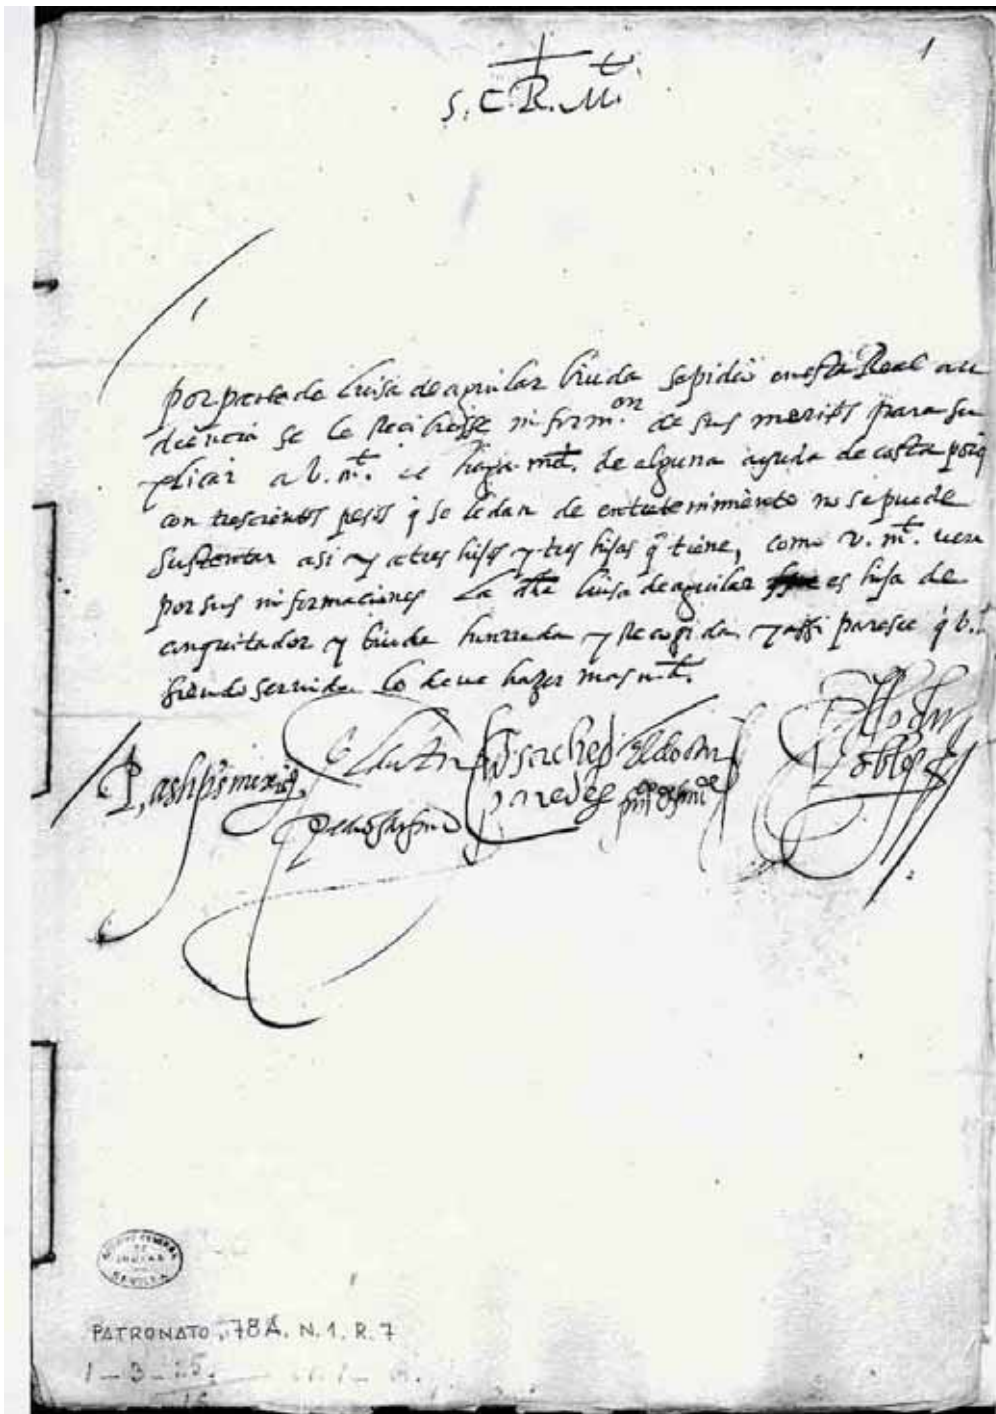 1
S. C. R. M.t
por parte de luisa de aguilar biuda se pidio en esta Real au
diencia se le Recibiesse inform.on de sus meritos para su
plicar a V. m.t le haga md. de alguna ayuda de costa porq
con trescientos pesos q se le dan de entretenimiento no se puede
sustentar asi y a tres hijos y tres hijas q tiene, como v. m.t vera
por sus informaciones La dha luisa de aguilar es hija de
conquistador y biuda honrrada y Recogida y assi paresce q V.
siendo servido lo deve hazer mas md.
P. archps mexicˢ.
El doctor
sanchez
paredes
El doctor
Robles
ARCHIVO GENERAL
DE
INDIAS
SEVILLA
PATRONATO, 78A. N. 1. R. 7